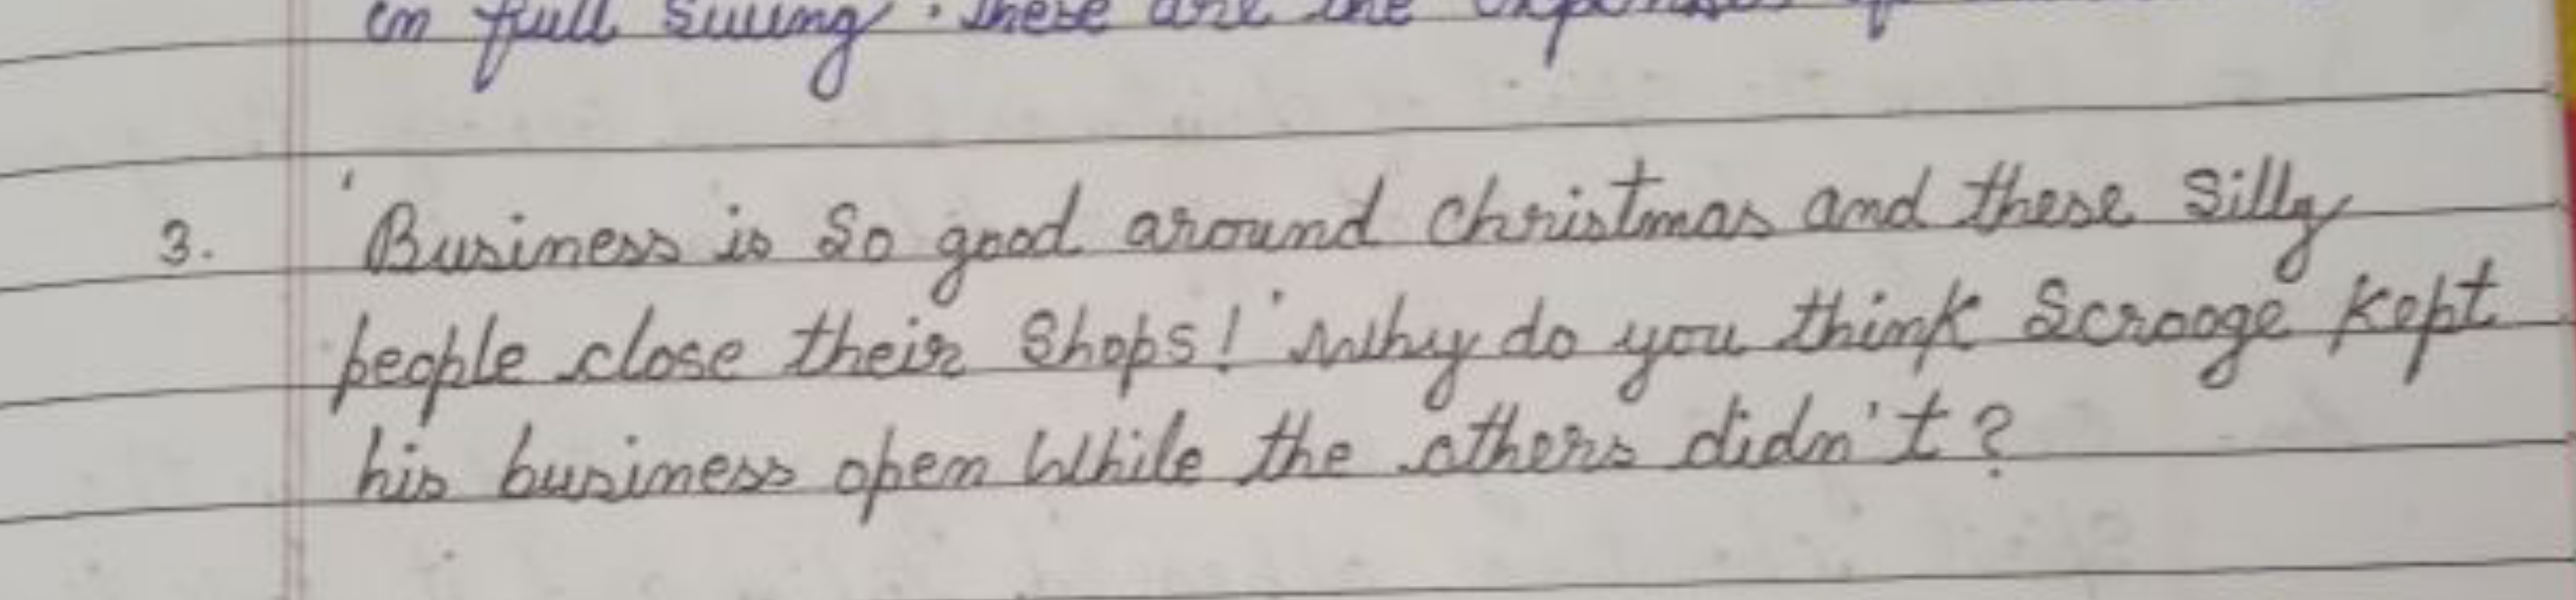 in full swing. These are the expenses of
3. 'Business is so good around christmas and these silly
people close their shops!' Why do you think Scrooge kept
his business open while the others didn't?